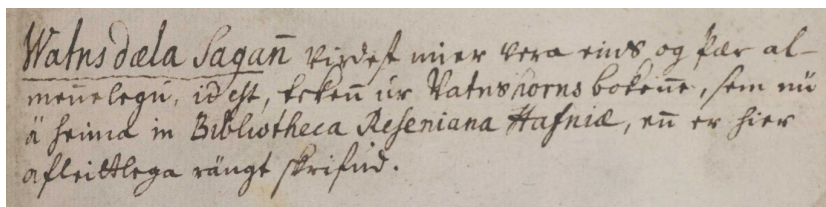 Watnsdæla Sagan̄ virdest mier vera eins og þær al-
men̄elegu, id est, teken̄ ur Vatnshorns boken̄e, sem nu
ä heima in Bibliotheca Reseniana Hafniæ, en̄ er hier
afleittlega rängt skrifud.